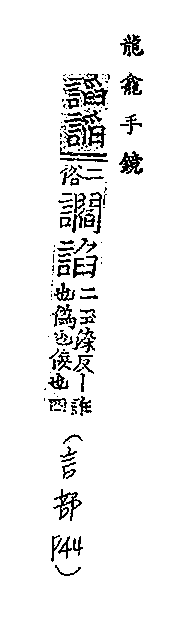 龍龕手鏡
謟謟二俗讇諂二染反丨也偽也佞也四（言部P44）